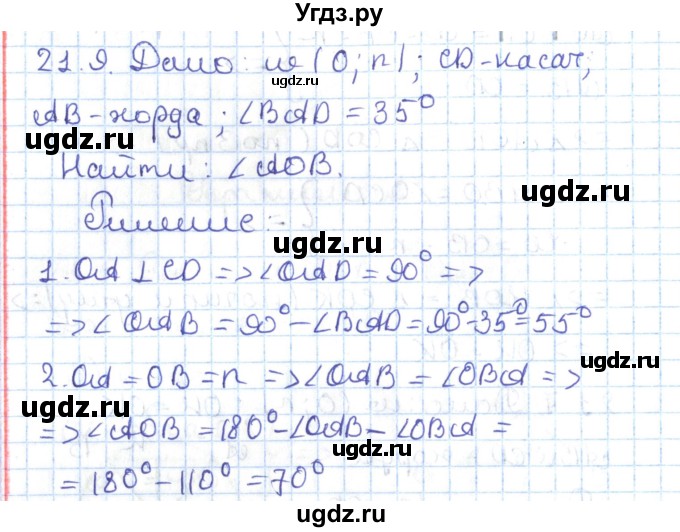 Угдз.ру
21.9. Дано: w (O; r); CD-касат,
AB-хорда; ∠BAD = 35°
ugdz.ru ugdz.ru
Найти: ∠AOB.
ugdz.ru
Решение:
ugdz.ru
1. OA ⊥ CD => ∠OAD = 90° =>
ugdz.ru
=> ∠OAB = 90° - ∠BAD = 90° - 35° = 55°
2. OA = OB = r => ∠OAB = ∠OBA =>
ugdz.ru ugdz.ru
=> ∠AOB = 180° - ∠OAB - ∠OBA =
ugdz.ru
= 180° - 110° = 70°
ugdz.ru
Угдз.ру